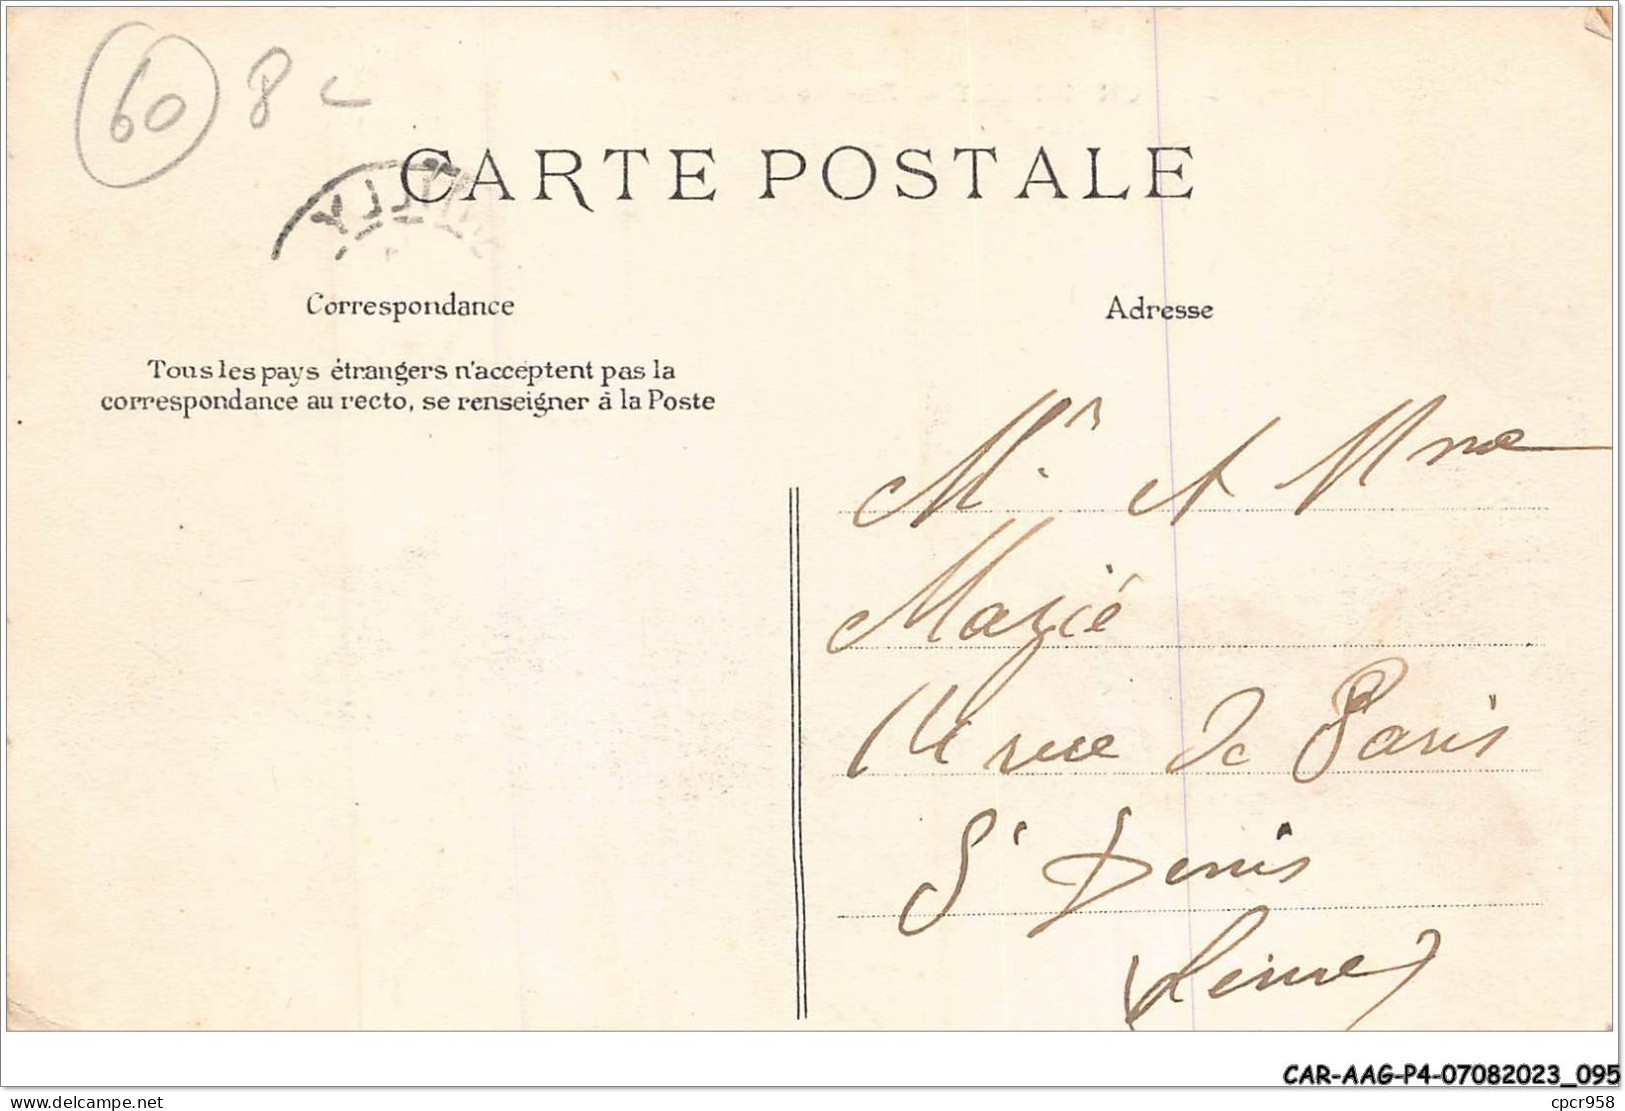 60 8c
CARTE POSTALE
Correspondance
Adresse
Tous les pays étrangers n'acceptent pas la
correspondance au recto, se renseigner à la Poste
Mr. et Mme
Mazié
14 rue de Paris
St Denis
(Seine)
CAR-AAG-P4-07082023_095
www.delcampe.net
cpcr958